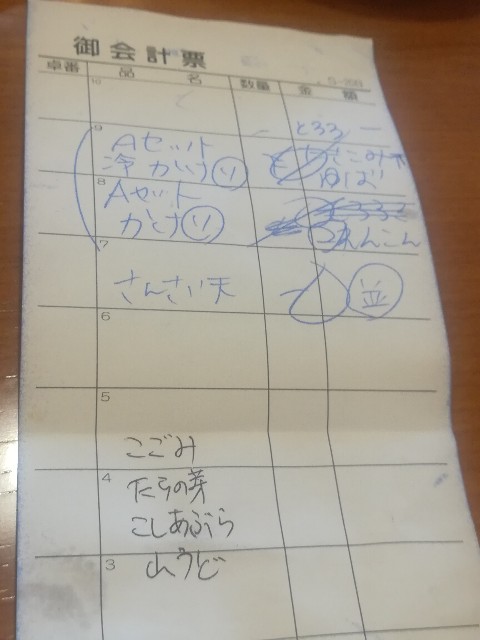 御会計票
卓番 品名 数量 金額
10
9 Aセット とろろ
冷かけ ソ
ゆば
8 Aセット
かけ ソ れんこん
7
さんさい天 並
6
5
こごみ
4 たらの芽
こしあぶら
3 山うど